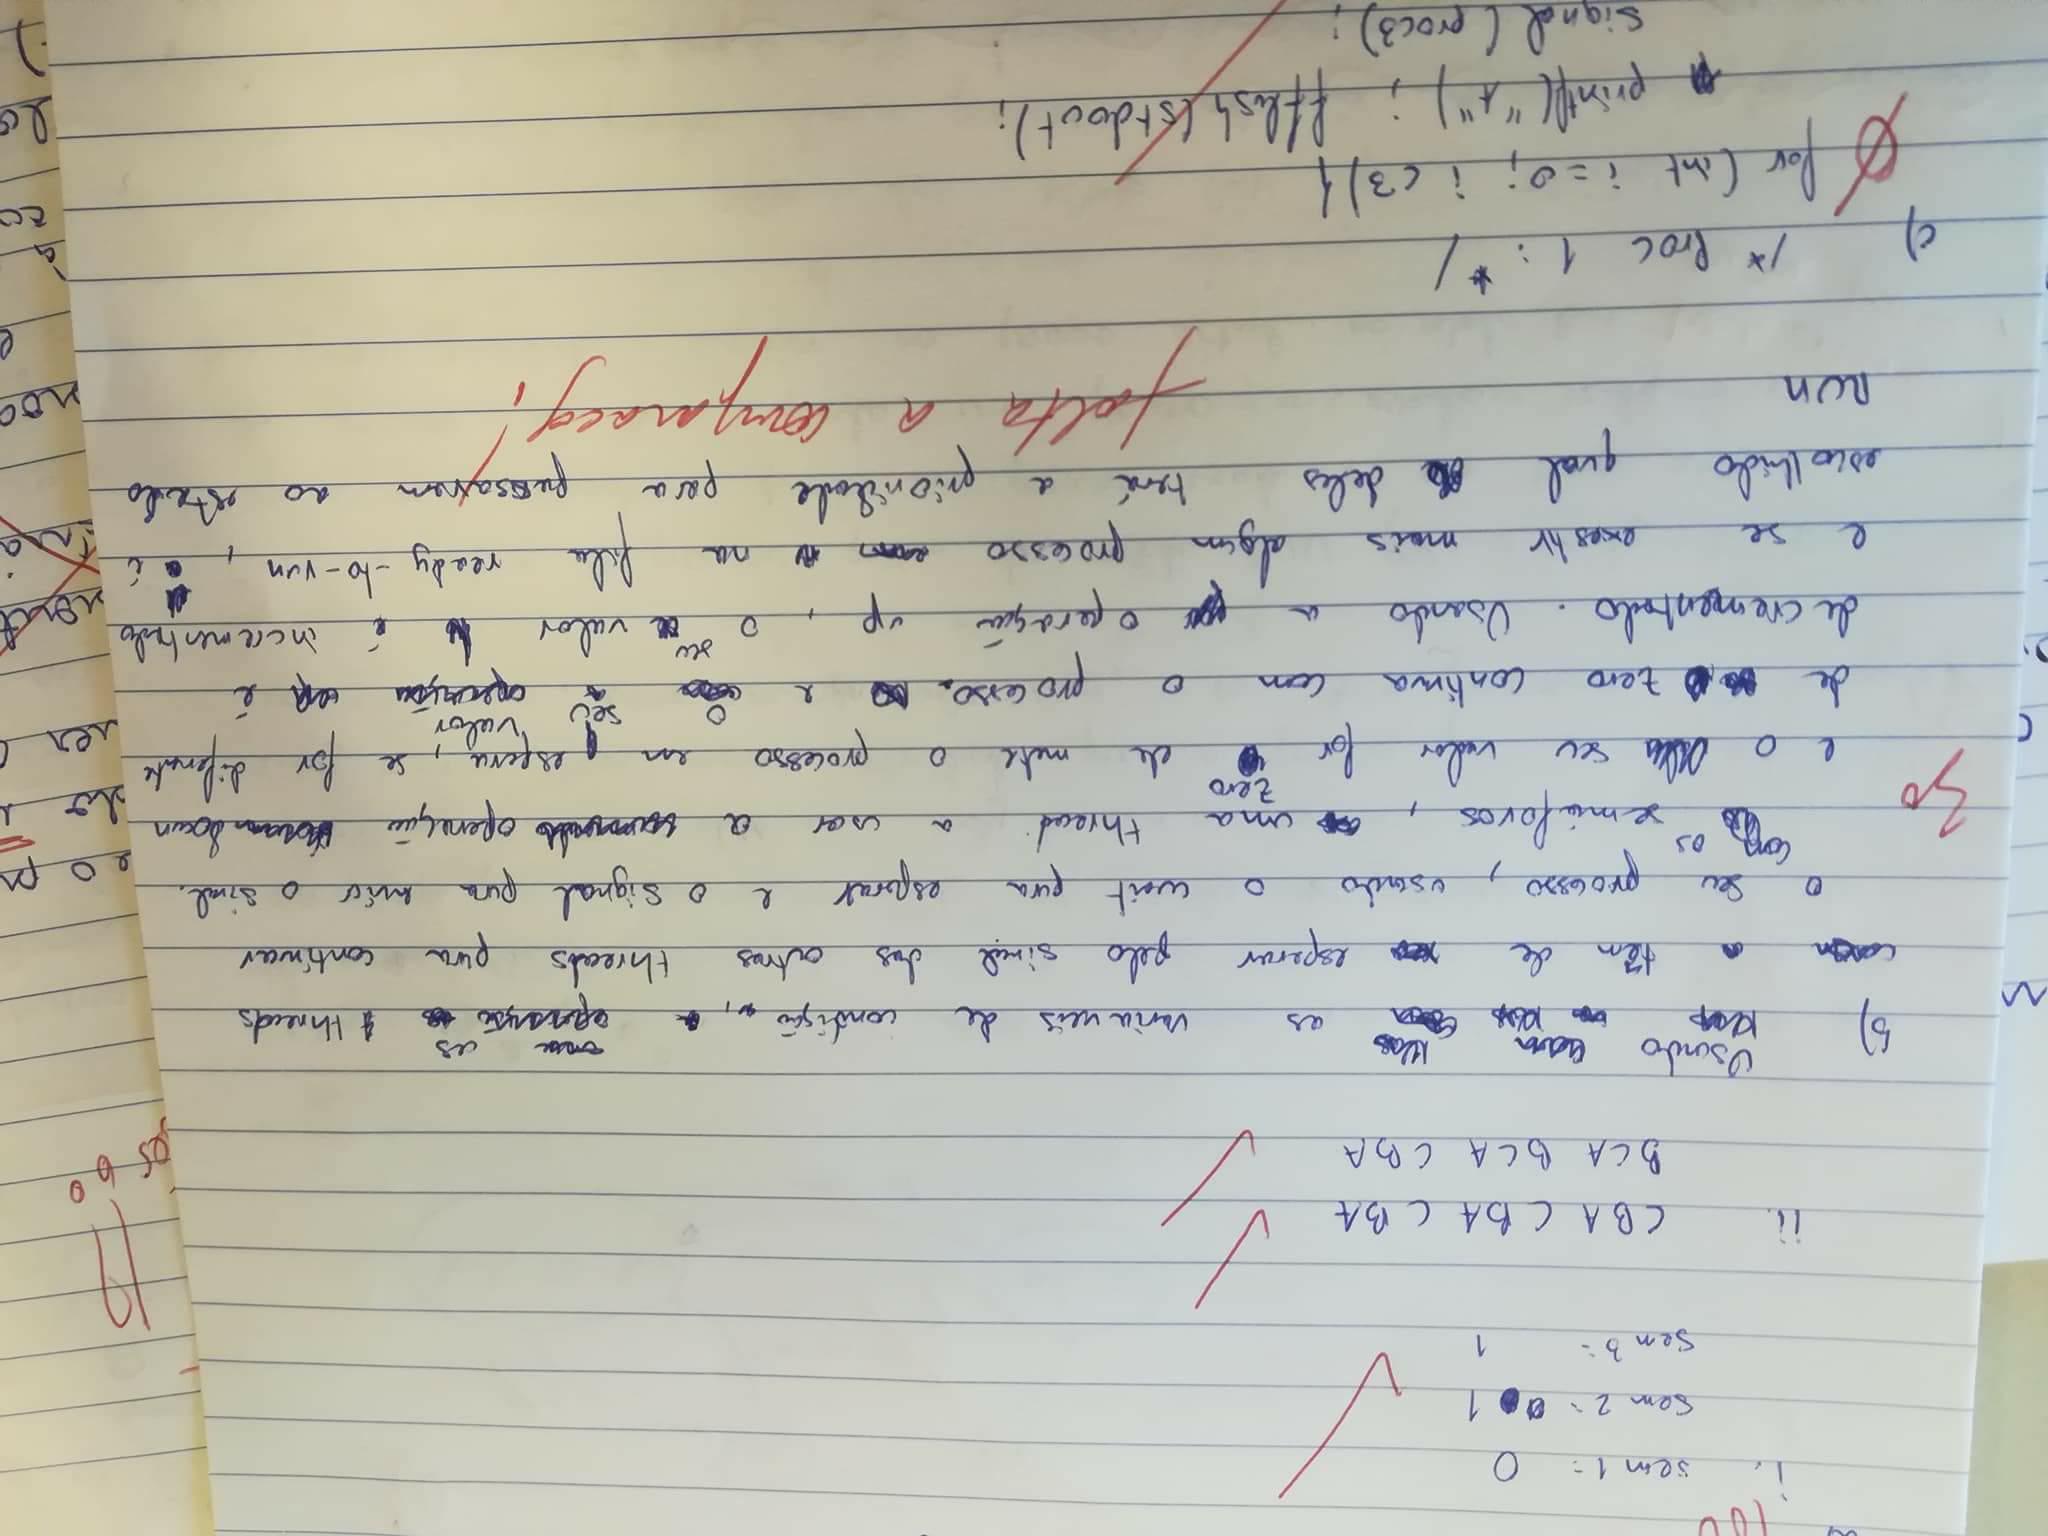 100
i. sem 1 = 0
sem 2 = 1
sem 3 = 1
ii. CBA CBA CBA
BCA BCA CBA
b) Usando as variaveis de condição, as threads
têm de esperar pelo sinal das outras threads para continuar
o seu processo, usando o wait para esperar e o signal para enviar o sinal.
30
Com os semáforos, uma thread a usar a operação down
e o seu valor for zero ele mete o processo em espera, se for diferente
de zero continua com o processo e o seu valor é
decrementado. Usando a operação up, o seu valor é incrementado
e se existir mais algum processo na fila ready-to-run, é
escolhido qual deles terá a prioridade para passarem ao estado
RUN
falta a comparação!
c) /* Proc 1 : */
0
for (int i=0; i<3){
printf("A"); fflush(stdout);
signal(proc3);